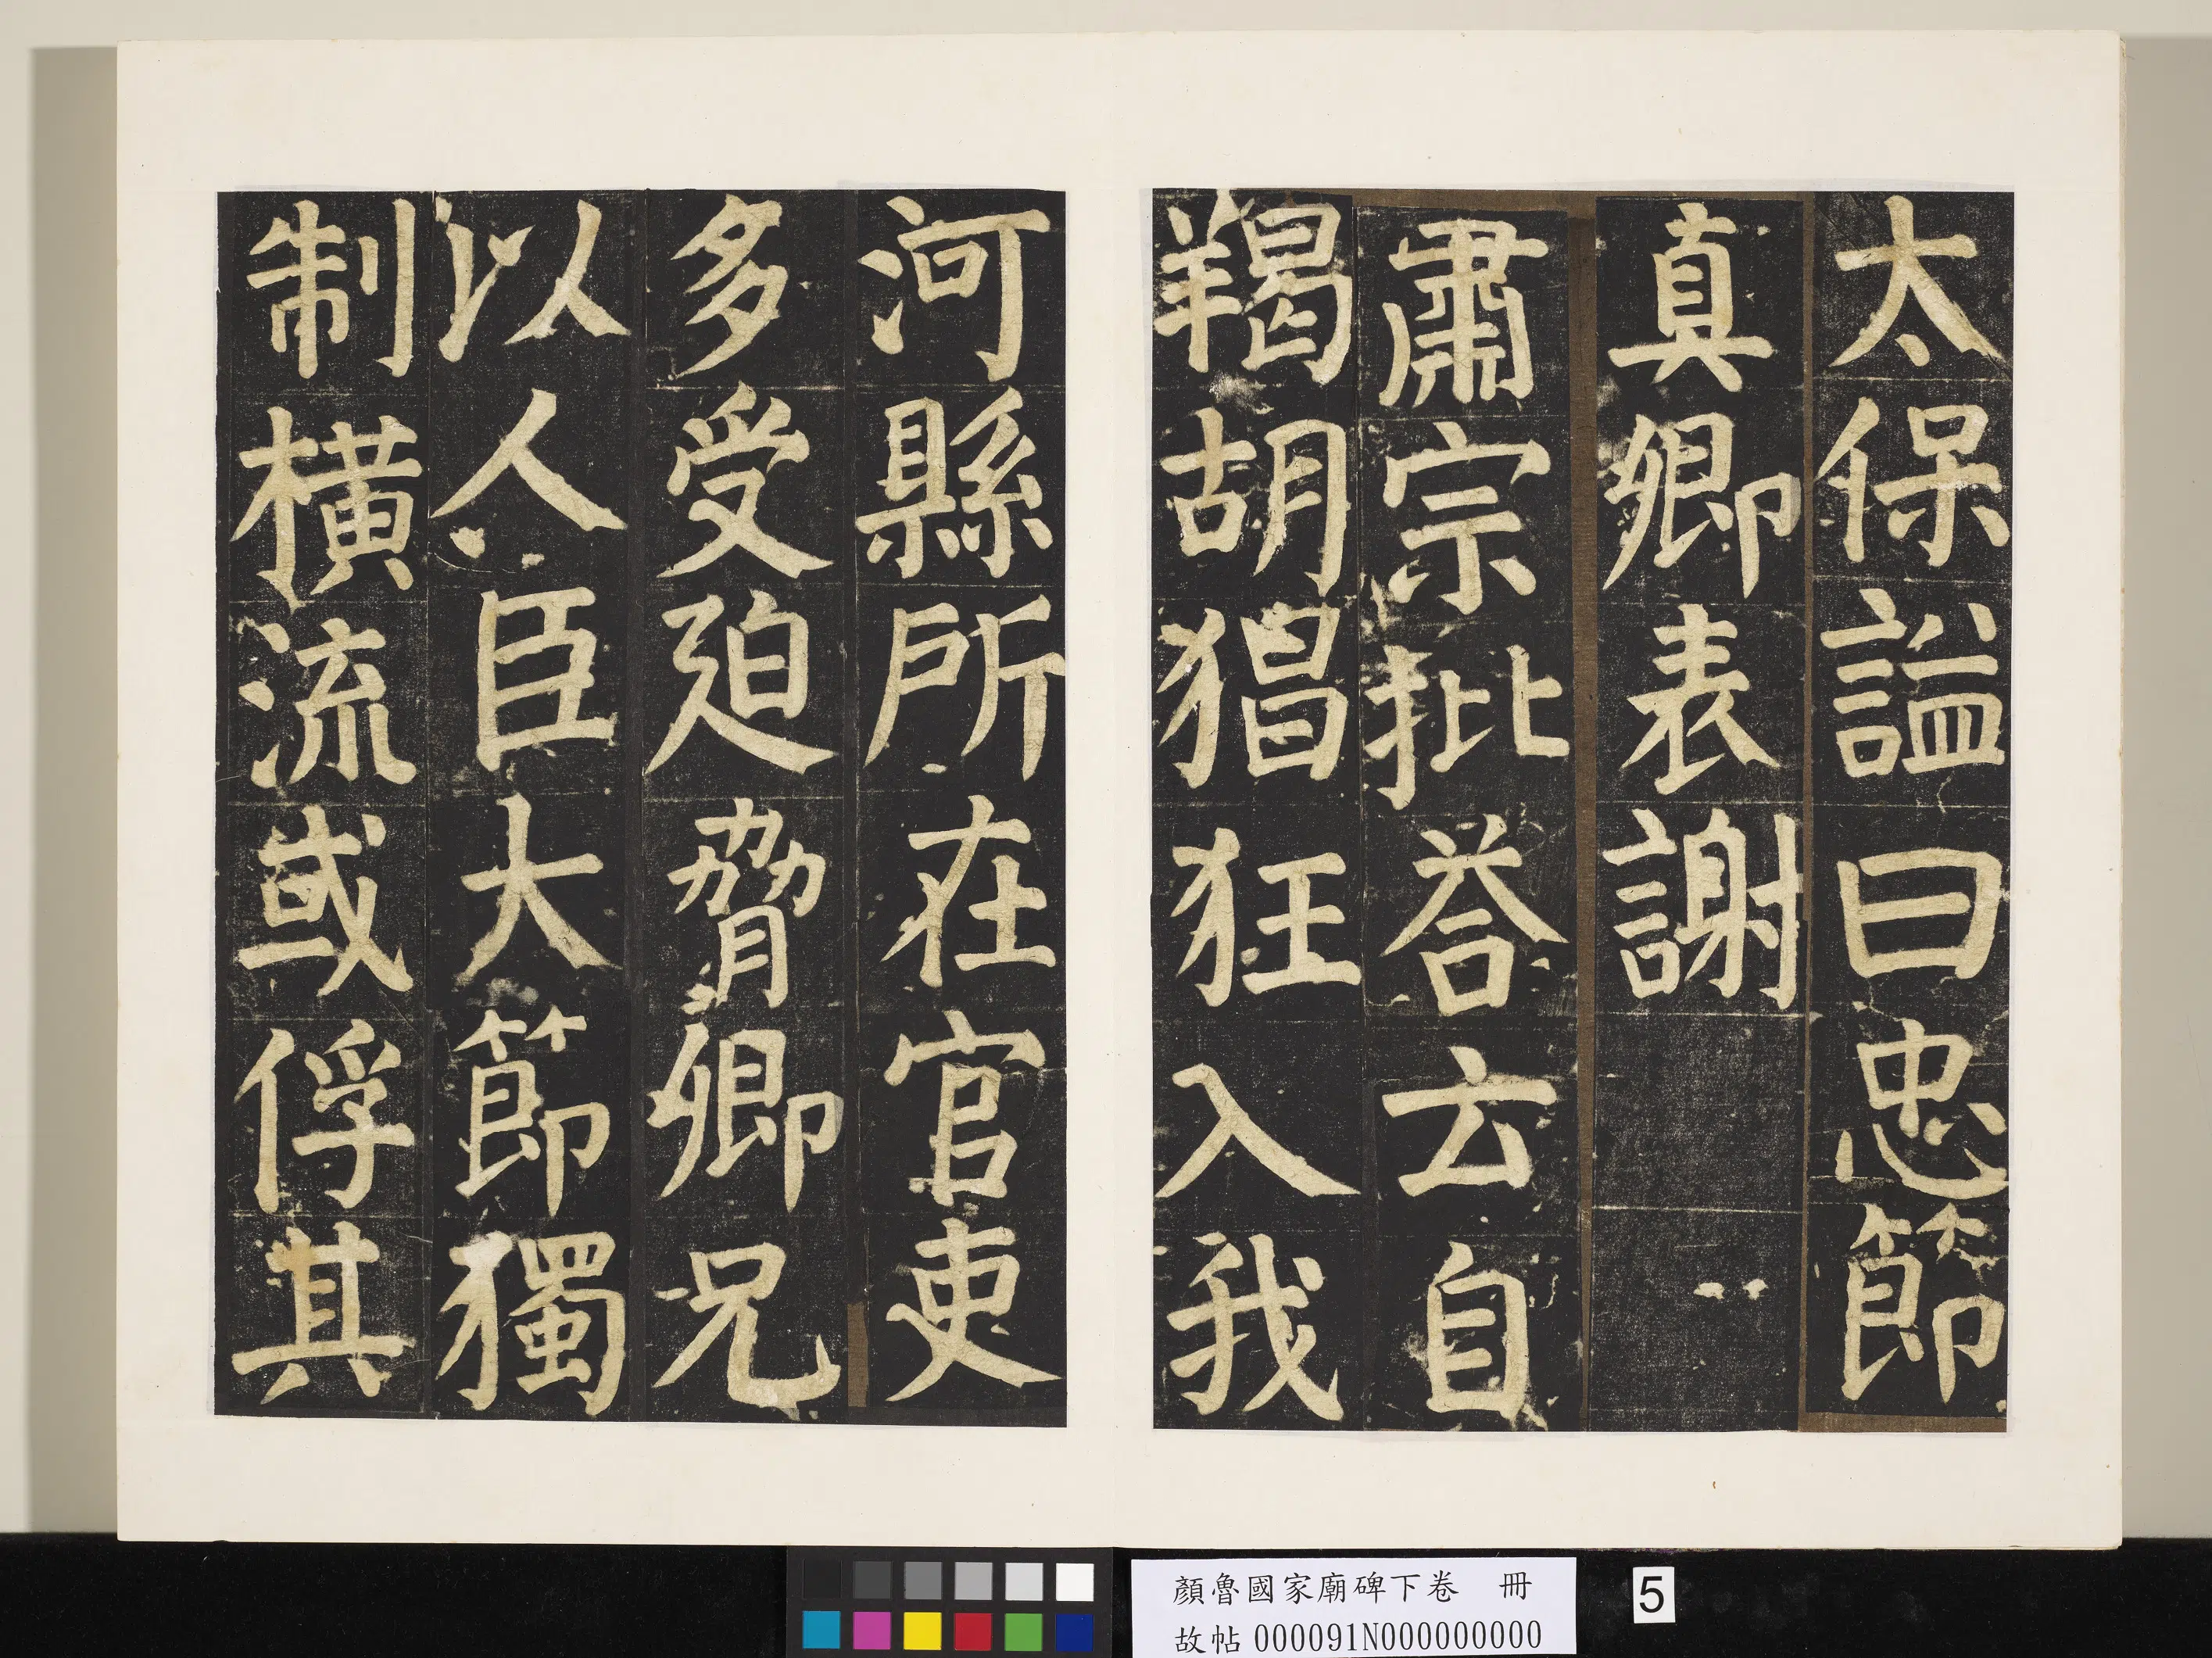 太保謚曰忠節
真卿表謝
肅宗批荅云自
羯胡猖狂入我
河縣所在官吏
多受廹脅卿兄
以人臣大節獨
制橫流或俘其
顏魯國家廟碑下卷　冊
故帖000091N000000000
5